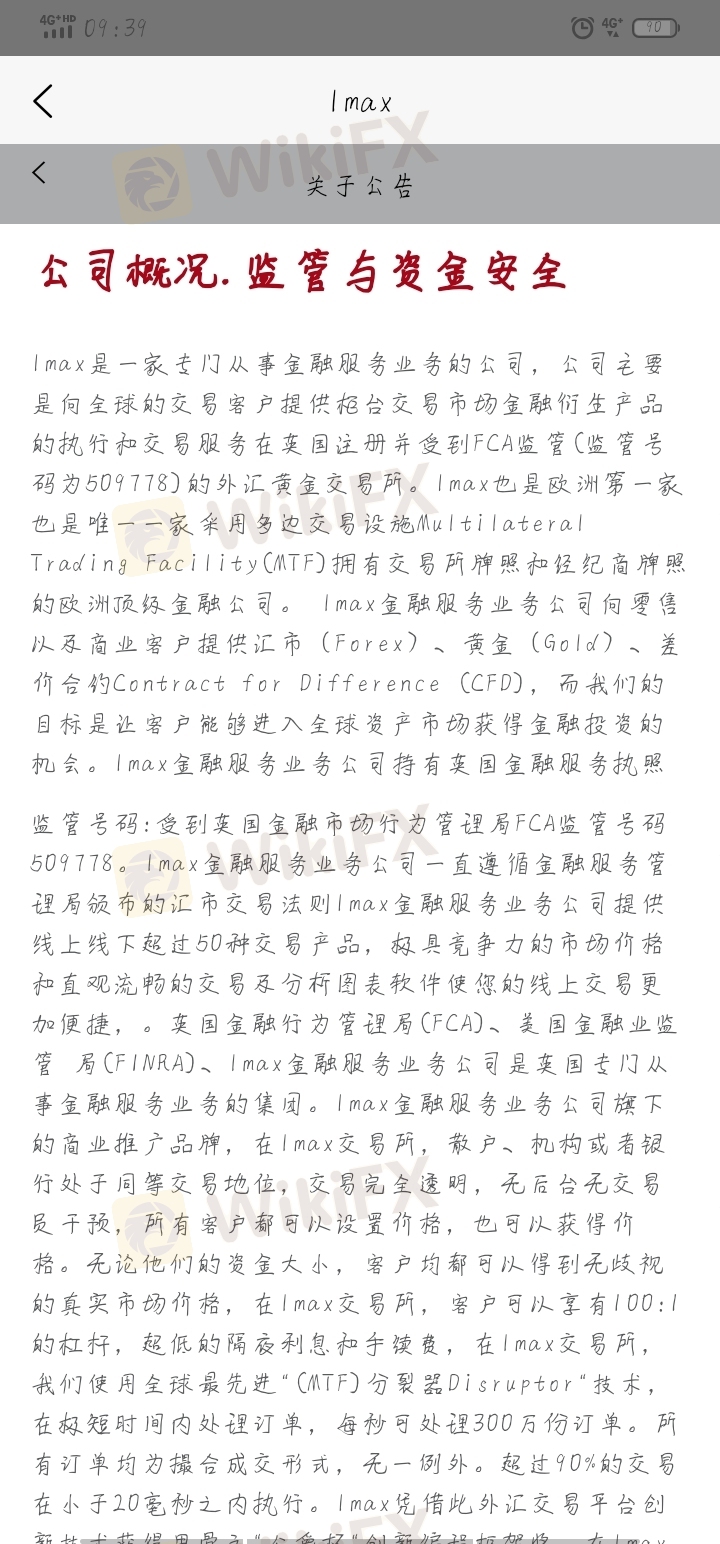 4G+HD 09:39 4G+ 90
lmax
关于公告
公司概况.监管与资金安全
lmax是一家专门从事金融服务业务的公司，公司主要
是向全球的交易客户提供柜台交易市场金融衍生产品
的执行和交易服务在英国注册并受到FCA监管(监管号
码为509778)的外汇黄金交易所。lmax也是欧洲第一家
也是唯一一家采用多边交易设施Multilateral
Trading Facility(MTF)拥有交易所牌照和经纪商牌照
的欧洲顶级金融公司。 lmax金融服务业务公司向零售
以及商业客户提供汇市（Forex）、黄金（Gold）、差
价合约Contract for Difference (CFD)，而我们的
目标是让客户能够进入全球资产市场获得金融投资的
机会。lmax金融服务业务公司持有英国金融服务执照
监管号码:受到英国金融市场行为管理局FCA监管号码
509778。lmax金融服务业务公司一直遵循金融服务管
理局颁布的汇市交易法则lmax金融服务业务公司提供
线上线下超过50种交易产品，极具竞争力的市场价格
和直观流畅的交易及分析图表软件使您的线上交易更
加便捷，。英国金融行为管理局(FCA)、美国金融业监
管 局(FINRA)、lmax金融服务业务公司是英国专门从
事金融服务业务的集团。lmax金融服务业务公司旗下
的商业推广品牌，在lmax交易所，散户、机构或者银
行处于同等交易地位，交易完全透明，无后台无交易
员干预，所有客户都可以设置价格，也可以获得价
格。无论他们的资金大小，客户均都可以得到无歧视
的真实市场价格，在lmax交易所，客户可以享有100:1
的杠杆，超低的隔夜利息和手续费，在lmax交易所，
我们使用全球最先进“(MTF)分裂器Disruptor“技术，
在极短时间内处理订单，每秒可处理300万份订单。所
有订单均为撮合成交形式，无一例外。超过90%的交易
在小于20毫秒之内执行。lmax凭借此外汇交易平台创
WikiFX
WikiFX
WikiFX
WikiFX